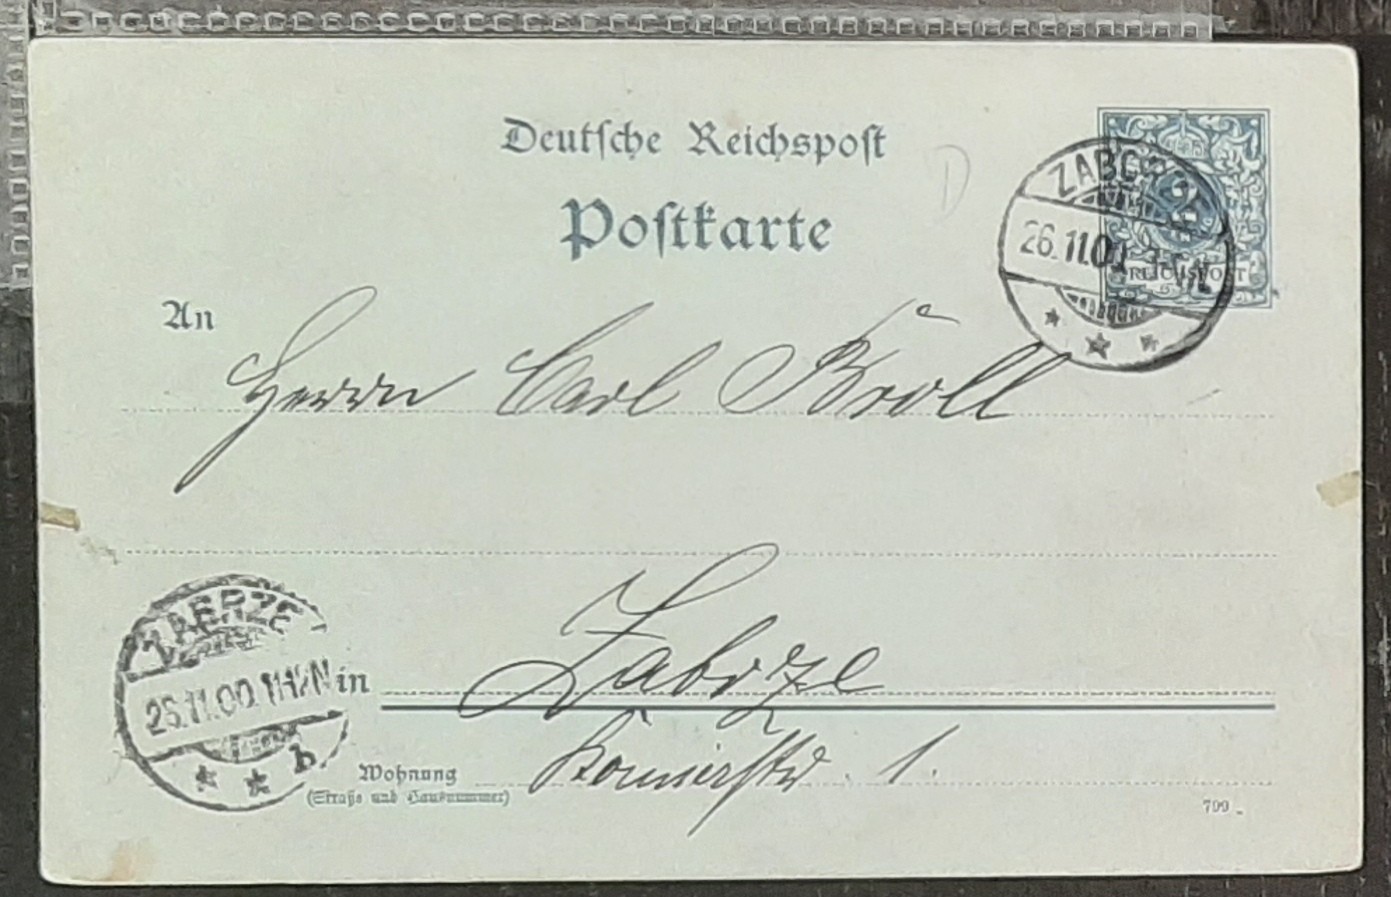 Deutsche Reichspost
D
Postkarte
ZABORZE
26.11.00
REICHSPOST
An
Herrn Carl Kroll
ZABRZE
26.11.00.11-12N
* * b.
in Zabrze
Wohnung
(Straße und Hausnummer)
1.
799